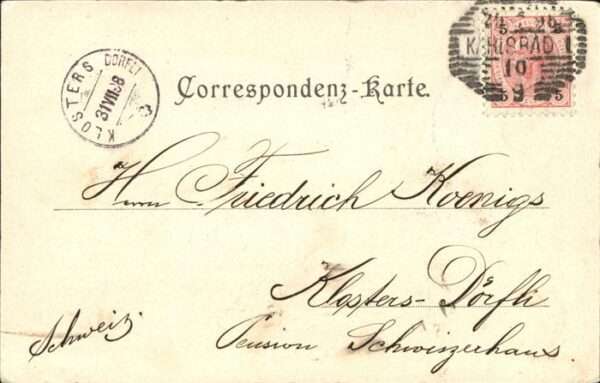 KLOSTERS DÖRFLI
31 VII 98
KARLSBAD 1
10
5 5
Correspondenz-Karte.
Herrn Friedrich Koenigs
Klosters-Dörfli
Pension Schweizerhaus
Schweiz.